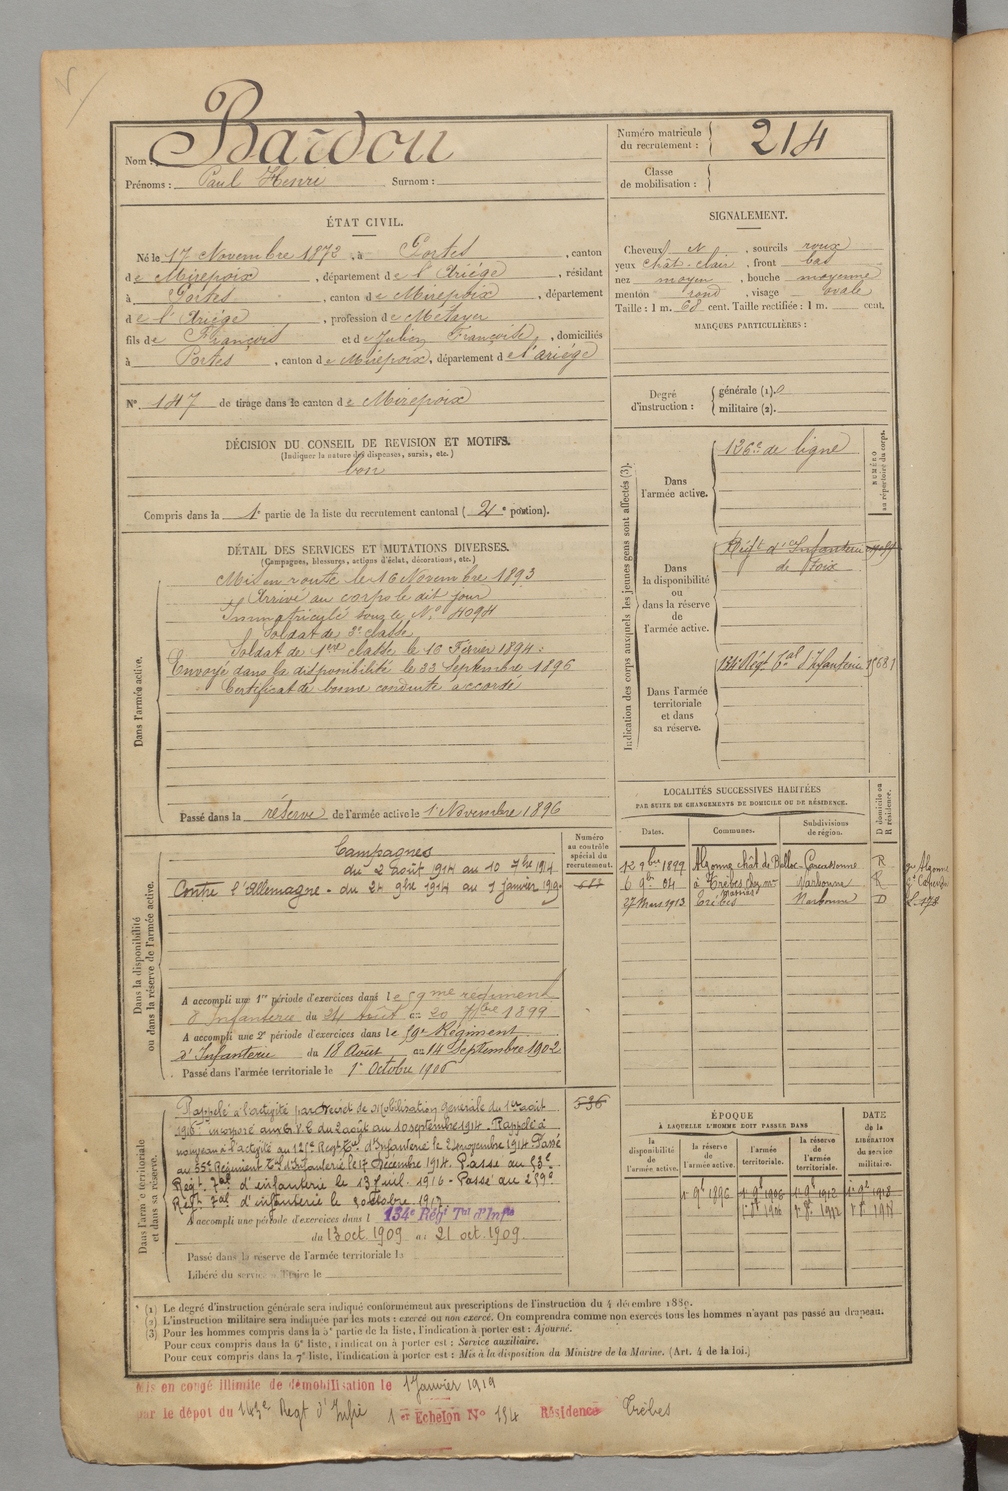 Bardou
Nom :
Prénoms : Paul Henri Surnom :
Numéro matricule du recrutement : 214
Classe de mobilisation :
ÉTAT CIVIL.
Né le 17 Novembre 1872, à Portes, canton
de Mirepoix, département de l'Ariége, résidant
à Portes, canton de Mirepoix, département
de l'Ariége, profession de Métayer
fils de François et de Julien Françoise, domiciliés
à Portes, canton de Mirepoix, département de l'ariége
N° 147 de tirage dans le canton de Mirepoix
DÉCISION DU CONSEIL DE REVISION ET MOTIFS.
(Indiquer la nature des dispenses, sursis, etc.)
bon
Compris dans la 1e partie de la liste du recrutement cantonal (2e portion).
DÉTAIL DES SERVICES ET MUTATIONS DIVERSES.
(Campagnes, blessures, actions d'éclat, décorations, etc.)
Dans l'armée active.
Mis en route le 16 Novembre 1893
Arrivé au corps le dit jour
Immatriculé sous le N° 4094
Soldat de 2e classe
Soldat de 1ere classe le 16 Février 1894
Envoyé dans la disponibilité le 23 Septembre 1896
Certificat de bonne conduite accordé
Passé dans la réserve de l'armée active le 1 Novembre 1896
Dans la disponibilité
ou dans la réserve de l'armée active.
Numéro au contrôle spécial du recrutement.
Campagnes
du 2 août 1914 au 10 7bre 1914
Contre l'Allemagne - du 24 9bre 1914 au 1 janvier 1919
A accompli une 1re période d'exercices dans le 59me régiment
d'Infanterie du 24 Août au 20 7bre 1899
A accompli une 2e période d'exercices dans le 59e Régiment
d'Infanterie du 18 Août au 14 Septembre 1902
Passé dans l'armée territoriale le 1er Octobre 1906
Dans l'armée territoriale
et dans sa réserve.
536
Rappelé à l'activité par décret de Mobilisation générale du 1er août
incorporé aux G.V.C. du 2 août au 10 septembre 1914. Rappelé à
nouveau à l'activité au Regt Tal d'Infanterie le 24 novembre 1914 Passé
au 35e Régiment Tal d'Infanterie le 17 Décembre 1914. Passé au 53e
Régt. Tal d'infanterie le 13 Juil. 1916 - Passé au 259e
Régt. Tal d'infanterie le 3 octobre 1917
A accompli une période d'exercices dans l 134e Régt Tal d'Infie
du 13 oct. 1909 au 21 oct. 1909
Passé dans la réserve de l'armée territoriale le
Libéré du service militaire le
SIGNALEMENT.
Cheveux N, sourcils roux
yeux chât-clair, front bas
nez moyen, bouche moyenne
menton rond, visage ovale
Taille : 1 m. 68 cent. Taille rectifiée : 1 m. cent.
MARQUES PARTICULIÈRES :
Degré d'instruction :
générale (1). 0
militaire (2).
Indication des corps auxquels les jeunes gens sont affectés (3).
NUMÉRO au répertoire du corps.
Dans l'armée active.
126e de ligne
Dans la disponibilité ou dans la réserve de l'armée active.
Régt d'Infanterie
de Foix
Dans l'armée territoriale et dans sa réserve.
134e Régt Tal d'Infanterie
LOCALITÉS SUCCESSIVES HABITÉES
PAR SUITE DE CHANGEMENTS DE DOMICILE OU DE RÉSIDENCE.
Dates. Communes. Subdivisions de région. D domicile ou R résidence.
12 9bre 1899 Alzonne chât de Carcassonne R
6 9bre 04 à Trèbes chez mr Narbonne R
27 Mars 1913 Trèbes Narbonne D
ÉPOQUE
À LAQUELLE L'HOMME DOIT PASSER DANS
la disponibilité de l'armée active. la réserve de l'armée active. l'armée territoriale. la réserve de l'armée territoriale.
DATE de la LIBÉRATION du service militaire.
1er 9bre 1896 1er 9bre 1906 1er 9bre 1912 1er 9bre 1918
(1) Le degré d'instruction générale sera indiqué conformément aux prescriptions de l'instruction du 4 décembre 1889.
(2) L'instruction militaire sera indiquée par les mots : exercé ou non exercé. On comprendra comme non exercés tous les hommes n'ayant pas passé au drapeau.
(3) Pour les hommes compris dans la 5e partie de la liste, l'indication à porter est : Ajourné.
Pour ceux compris dans la 6e liste, l'indication à porter est : Service auxiliaire.
Pour ceux compris dans la 7e liste, l'indication à porter est : Mis à la disposition du Ministre de la Marine. (Art. 4 de la loi.)
Mis en congé illimité de démobilisation le 1 Janvier 1919
par le dépot du 143e Regt d'Infie 1er Echelon N° 194 Résidence Trèbes